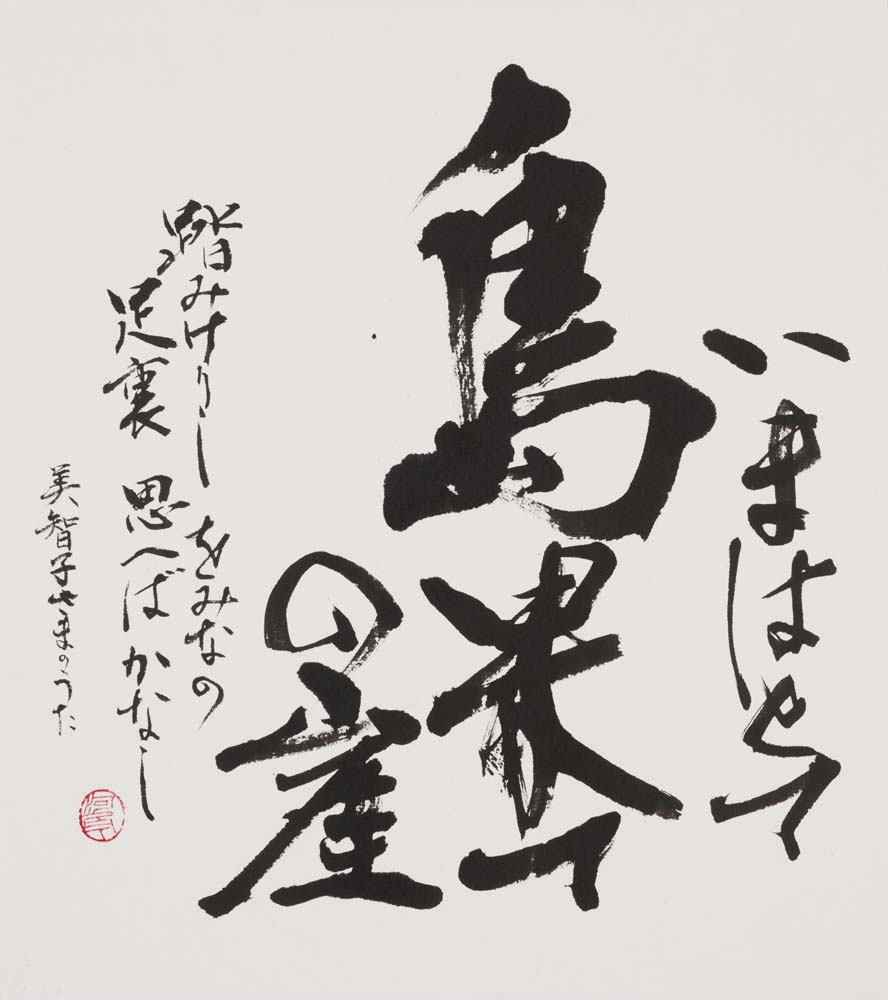 いまはとて
島果て
の崖
踏みけりし をみなの
足裏 思へば かなし
美智子さまのうた